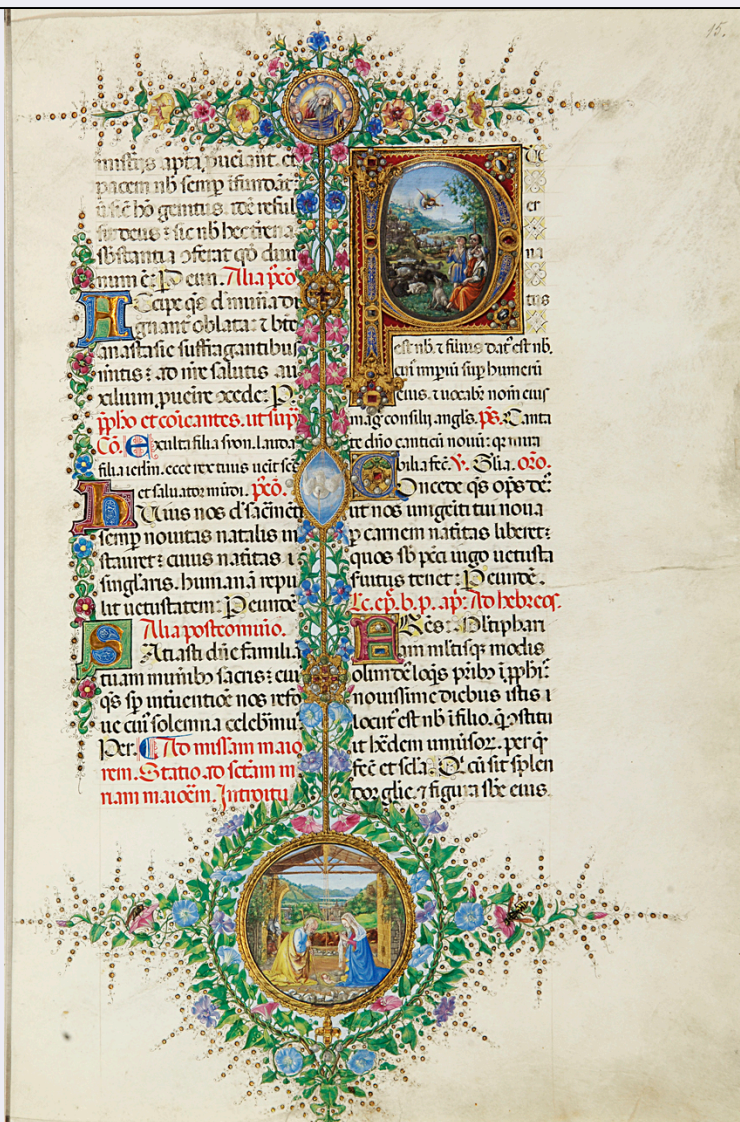 15.
mistiis apta, pueiant et
pacem nb semp
genitus. idē reful
sit deus : sic nb hec terrena
sbstantia oferat qd diui
num ē : P eun. Alia sēc̄o
Accipe qs d. munia di
gnant oblata : 7 btē
anastasie suffragantibus
mitis : ad nr̄e salutis au
xilium pueire xcede : P.
pp̄ho et cōicantes. ut supra
Cō. Exulta filia syon. lauda
filia ierlm. ecce rex tuus uēit scs
et saluator mūdi. pc̄o.
Huius nos d. sacmēti
semp nouitas natalis in
stauret : cuius natitas i
singlaris. humanā repu
lit uetustatem : P eundē
Alia postcomuio.
Satiasti dn̄e familiā
tuam munib sacris : eius
qs sp intuentiōe nos refo
ue cui solemnia celebmus
Per. Ad missam maio
rem. Statio ad sctām m
riam maiōem. Introitu
P
Ue
er
na
tus
est nb. 7 filius dat est nb.
cui impiū sup humerū
eius. 7 uocabr nom eius
mag consilii angls. ps. Canta
te dn̄o canticū nouū : q mira
bilia fēc. V. Glia. oro.
Concede qs ops dē :
ut nos unigeiti tui noua
p carnem natitas liberet :
quos sb pc̄ti iugo uetusta
s suitus tenet : P eundē.
Lc. ep. b. p. ap. Ad hebreos.
Fres : Mltiphari
am mltisq modis
olim dē loq̄s prib i pphis
nouissime diebus istis l
locut est nb i filio. q ostitu
it hēdem uniusor. per q
fēc et scla. Q cū sit splen
dor glie. 7 figura sbe eius.